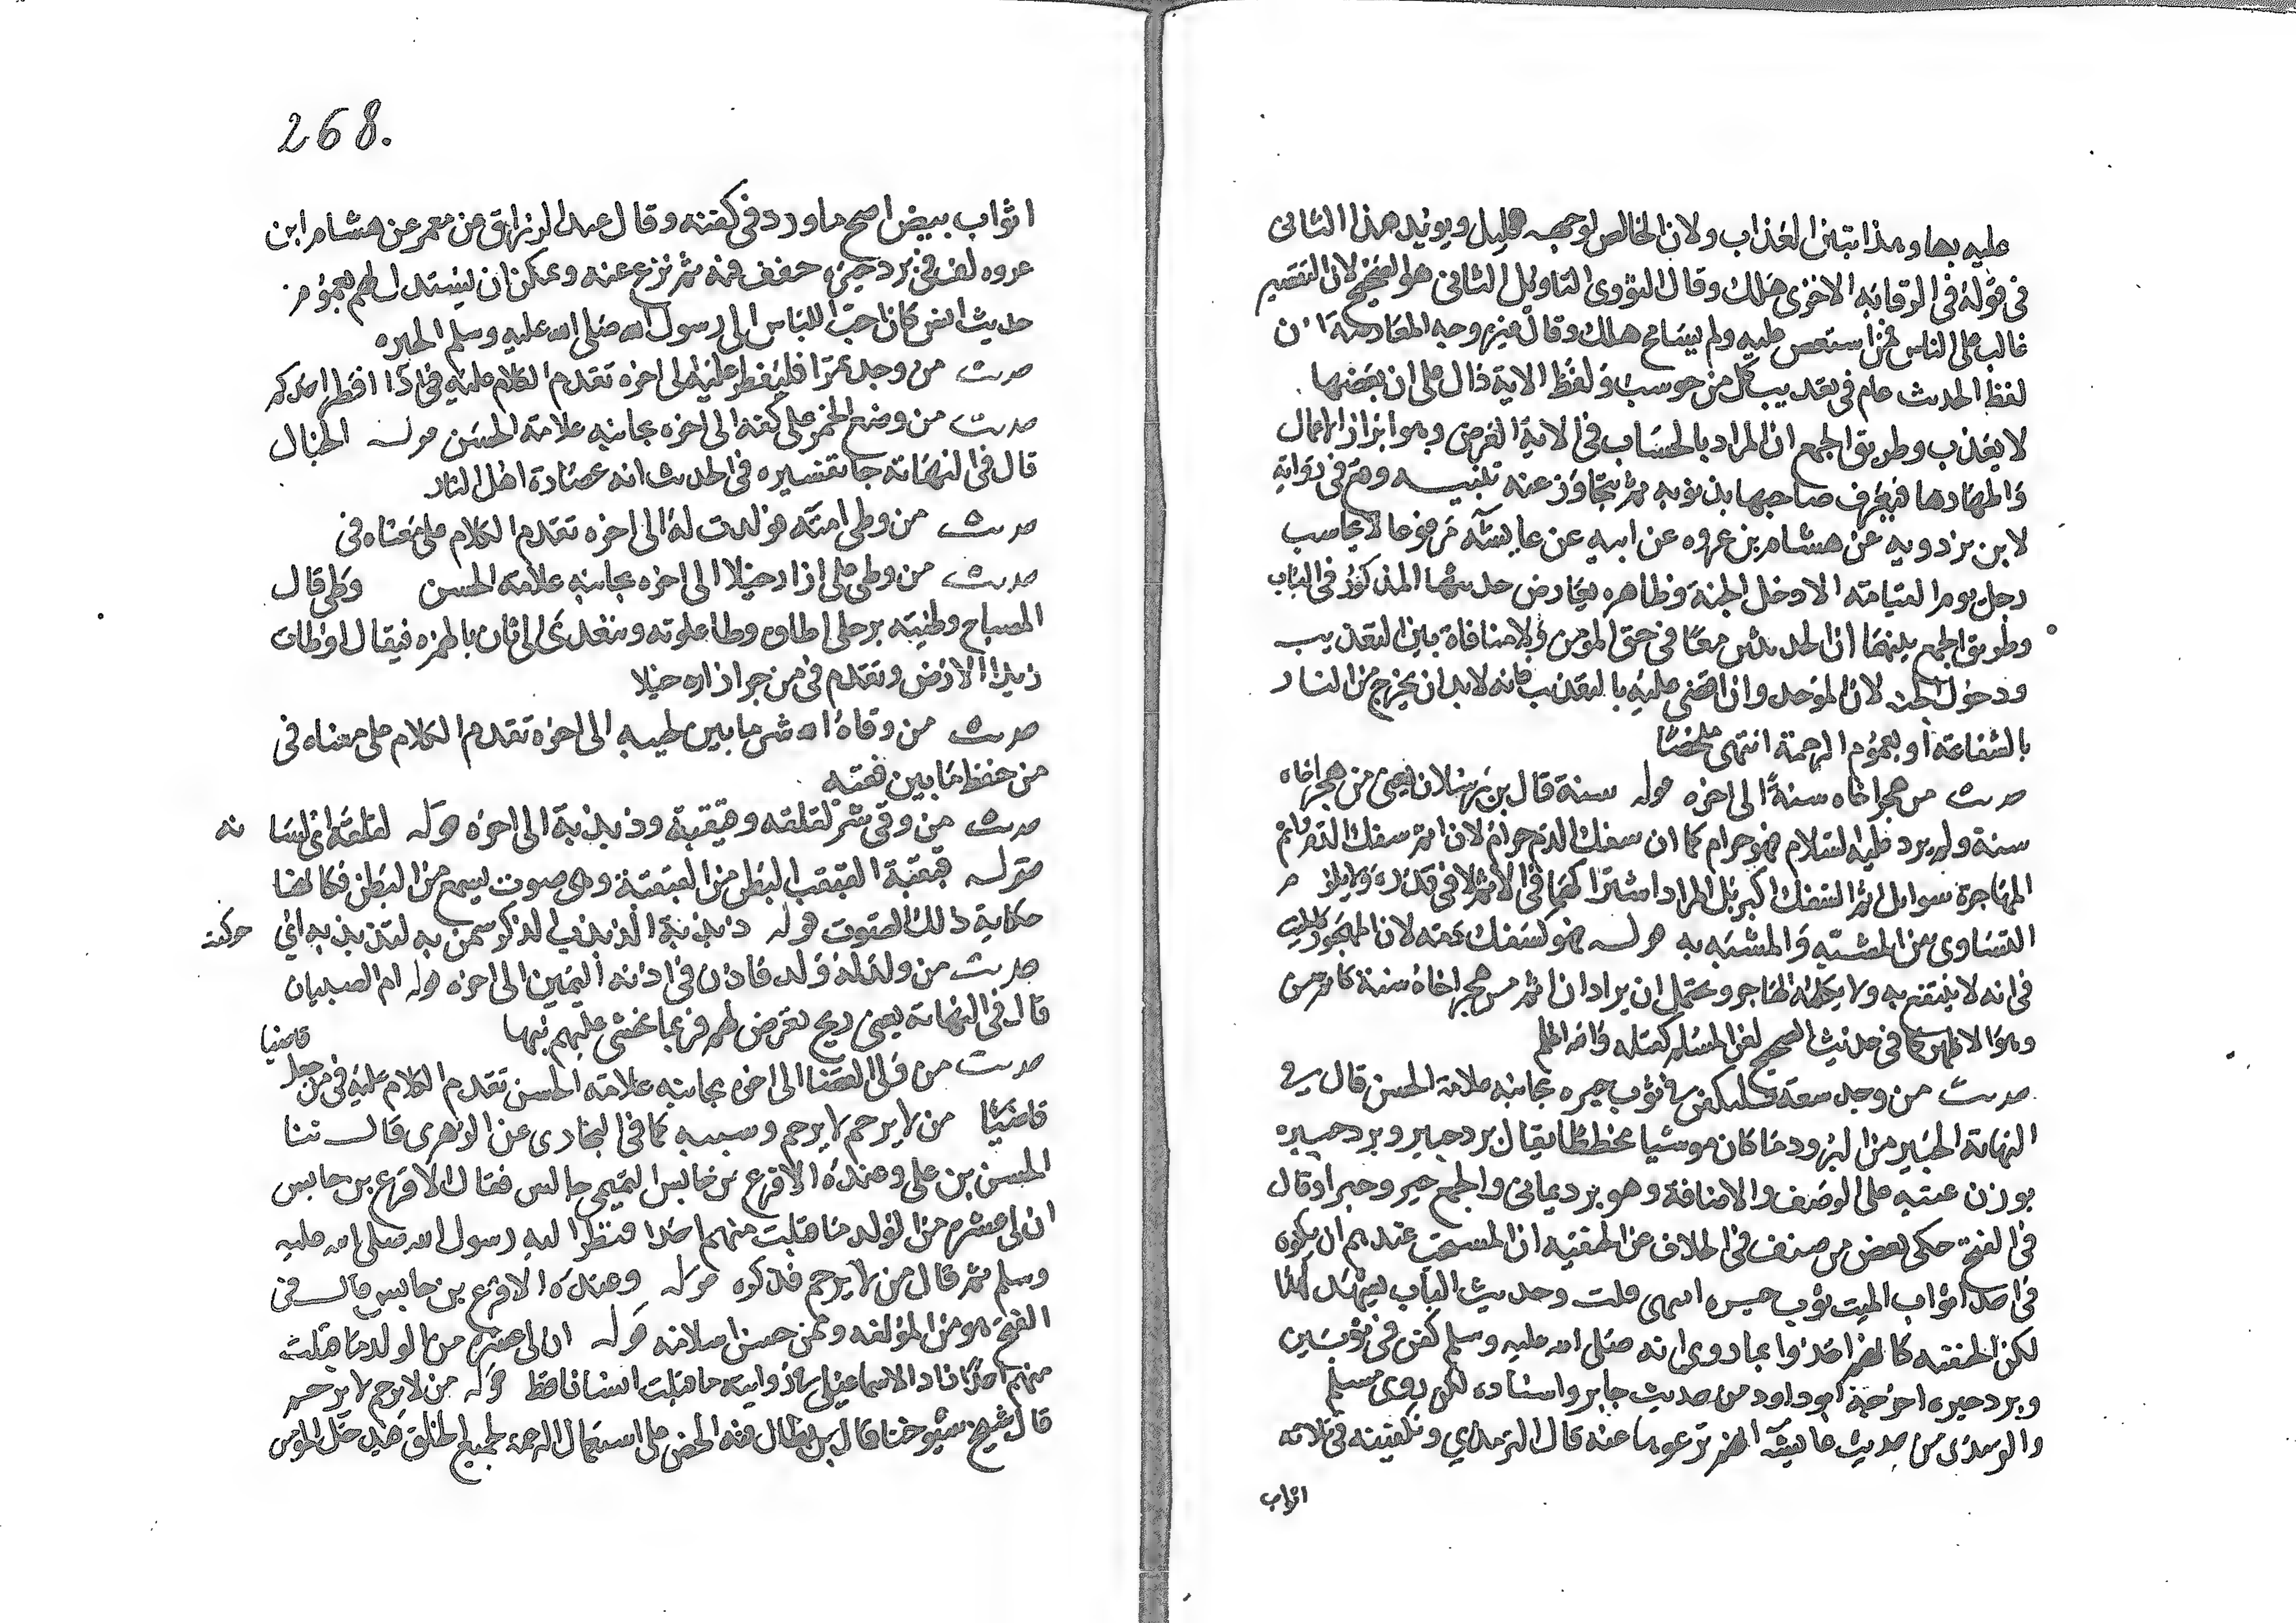 عليه بها وهذا يتبين العذاب ولان الخالص لوجهه قليل ويويد هذا الثانى
فى قوله فى الرواية الاخرى هلك وقال النووى التاويل الثانى هو الصحيح لان التقصير
غالب على الناس فمن استقصى عليه ولم يسامح هلك وقال غيره وجه المعارضة ان
لفظ الحديث عام فى تعذيب كل من حوسب ولفظ الاية دال على ان بعضها
لا يعذب وطريق الجمع ان المراد بالحساب فى الاية العرض وهو ابراز الاعمال
واظهارها فيعرف صاحبها بذنوبه ثم يتجاوز عنه تنبيه وقع فى رواية
لابن مردويه عن هشام بن عروه عن ابيه عن عايشة مرفوعا لا يحاسب
رجل يوم القيامة الا دخل الجنة وظاهره يعارض حديثها المذكور فى الباب
وطريق الجمع بينهما ان الحديثين معا فى حق المومن ولا منافاة بين التعذيب
ودخول الجنة لان الموحد وان قضى عليه بالتعذيب فانه لا بد ان يخرج من النار
بالشفاعة او بعموم الرحمة انتهى ملخصا
حديث من هجر اخاه سنة الى اخره قوله سنة قال بن رسلان يعنى من هجر اخاه
سنة ولم يرد عليه السلام فهو حرام كما ان سفك الدم حرام لان اثم سفك الدم كاثم
المهاجرة سوا بل اثم السفك اكبر بل المراد اشتراكهما فى الاثم لا فى قدره ولا يلزم
التساوى بين المشبه والمشبه به قوله فهو كسفك دمه لان المهجور كالميت
فى انه لا ينتفع به ولا يكلمه الهاجر ويحتمل ان يراد ان اثم من هجر اخاه سنة كاثم من
وهو الاظهر كما فى حديث الصحيح لعن المسلم كقتله والله اعلم
حديث من وجد سعة فليكفن فى ثوب حبره بجانبه علامة الحسن قال فى
النهاية الحبير من البرود ما كان موشيا مخططا يقال برد حبير وبرد حبره
بوزن عنبه على الوصف والاضافة وهو برد يمانى والجمع حبر وحبرات وقال
فى الفتح حكى بعض من صنف فى الخلاف عن الحنفيه ان المستحب عندهم ان يكون
فى احد اثواب الميت ثوب حبره انتهى قلت وحديث الباب يشهد لهذا
لكن الحنفيه كانهم اخذوا بما روى انه صلى الله عليه وسلم كفن فى ثوبين
وبرد حبره اخرجه ابو داود من حديث جابر واسناده لكن روى مسلم
والترمذى من حديث عايشة انهم نزعوها عنه قال الترمذي وتكفينه فى ثلاثه
اثواب
268.
اثواب بيض اصح ما ورد فى كفنه وقال عبد الرزاق عن معمر عن هشام ابن
عروه لف فى برد حبره جفف فيه ثم نزع عنه ويمكن ان يستدل لهم بعموم
حديث انس كان احب اللباس الى رسول الله صلى الله عليه وسلم الحبره
حديث من وجد تمرا فليفطر عليه الى اخره تقدم الكلام عليه فى اذا افطر احدكم
حديث من وضع الخمر على كفه الى اخره بجانبه علامة الحسن قوله الخبال
قال فى النهاية جا تفسيره فى الحديث انه عصارة اهل النار
حديث من وطى امته فولدت له الى اخره تقدم الكلام على معناه فى
حديث من وطى على ازار خيلا الى اخره بجانبه علامة الحسن وطى قال
المصباح وطئته برجلى اطاوه وطا علوته ويتعدى الى ثان بالهمزه فيقال اوطات
زيدا الارض وتقدم فى من جر ازاره خيلا
حديث من وقاه الله شر ما بين لحييه الى اخره تقدم الكلام على معناه فى
من حفظ ما بين فقميه
حديث من وقى شر لقلقه وقبقبه وذبذبة الى اخره قوله لقلقه اى لسانه
قوله قبقبة القبقب البطن من القبقبة وهى صوت يسمع من البطن فكانها
حكاية ذلك الصوت قوله ذبذبة الذبذب الذكر سمى به لتذبذبه اي حركته
حديث من ولد له ولد فاذن فى اذنه اليمين الى اخره قوله ام الصبيان
قال فى النهاية يعنى ريح تعرض لهم فربما يخشى عليهم منها
حديث من ولى القضا الى اخره بجانبه علامة الحسن تقدم الكلام عليه فى من جعل قاضيا
قاضيا من لا يرحم لا يرحم وسببه كما فى البخارى عن الزهرى قال ثنا
الحسن بن على وعنده الاقرع بن حابس التميمى جالس فقال الاقرع بن حابس
ان لى عشره من الولد ما قبلت منهم احدا فنظر اليه رسول الله صلى الله عليه
وسلم ثم قال من لا يرحم فذكره قوله وعنده الاقرع بن حابس قال فى
الفتح هو من المولفه وممن حسن اسلامه قوله ان لى عشره من الولد ما قبلت
منهم احدا زاد الاسماعيلى فى روايته ما قبلت انسانا قط قوله من لا يرحم لا يرحم
قال شيخ شيوخنا قال بن بطال فيه الحض على استعمال الرحمة لجميع الخلق فيدخل المومن